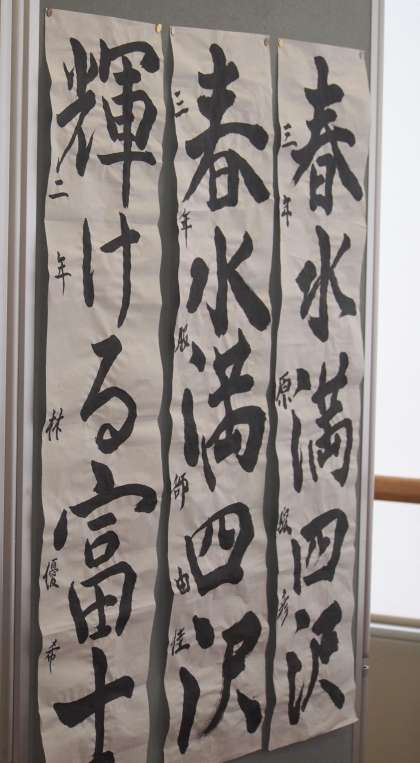 春水満四沢
三年 原 俊彦
春水満四沢
三年 服部由佳
輝ける富士
二年 林 優希